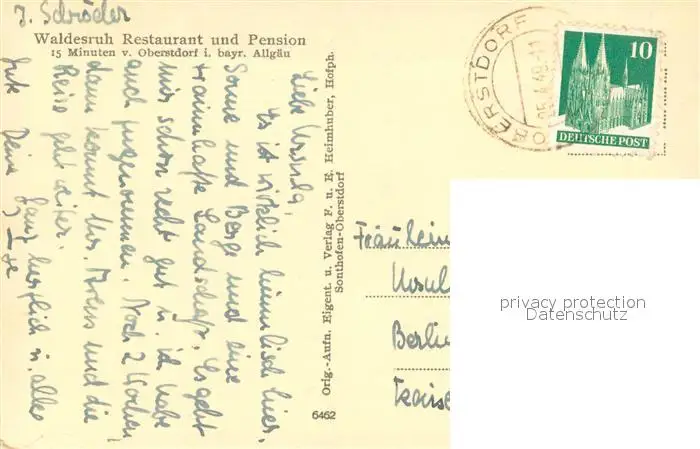 J. Schröder
Waldesruh Restaurant und Pension
15 Minuten v. Oberstdorf i. bayr. Allgäu
Liebe Ursula,
Es ist wirklich himmlisch hier,
Sonne und Berge und eine
traumhafte Landschaft. Es geht
mir schon recht gut u. ich habe
auch zugenommen. Noch 2 Wochen
dann kommt Urs. und die
Reise geht weiter.
Gute Deine ganz herzlich u. alles
Orig.-Aufn. Eigent. u. Verlag F. u. E. Heimhuber, Hofph.
Sonthofen-Oberstdorf
6462
OBERSTDORF
10
DEUTSCHE POST
Fräulein
Ursul
Berlin
privacy protection
Datenschutz